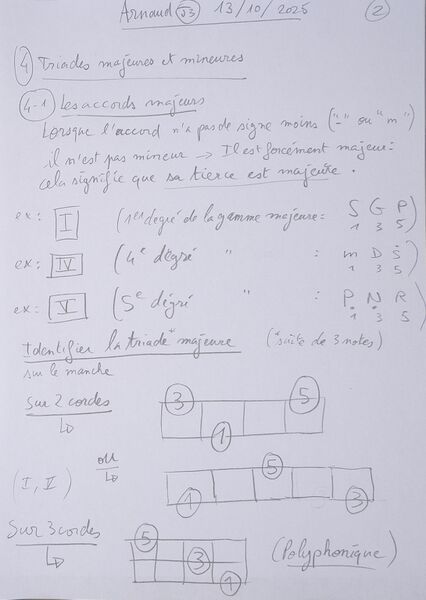 Arnaud 53 13/10/2025 2
4 Triades majeures et mineures
4-1 Les accords majeurs
Lorsque l'accord n'a pas de signe moins ("-" ou "m")
il n'est pas mineur → Il est forcément majeur =
cela signifie que sa tierce est majeure.
ex: I (1er degré de la gamme majeure = S G P)
1 3 5
ex: IV (4e degré " : m D S
1 3 5
ex: V (5e degré " : P N R)
1 3 5
Identifier la triade* majeure (*suite de 3 notes)
sur le manche
Sur 2 cordes
3 5
1
ou
(I, V)
5
1 3
Sur 3 cordes
5
3 (Polyphonique)
1